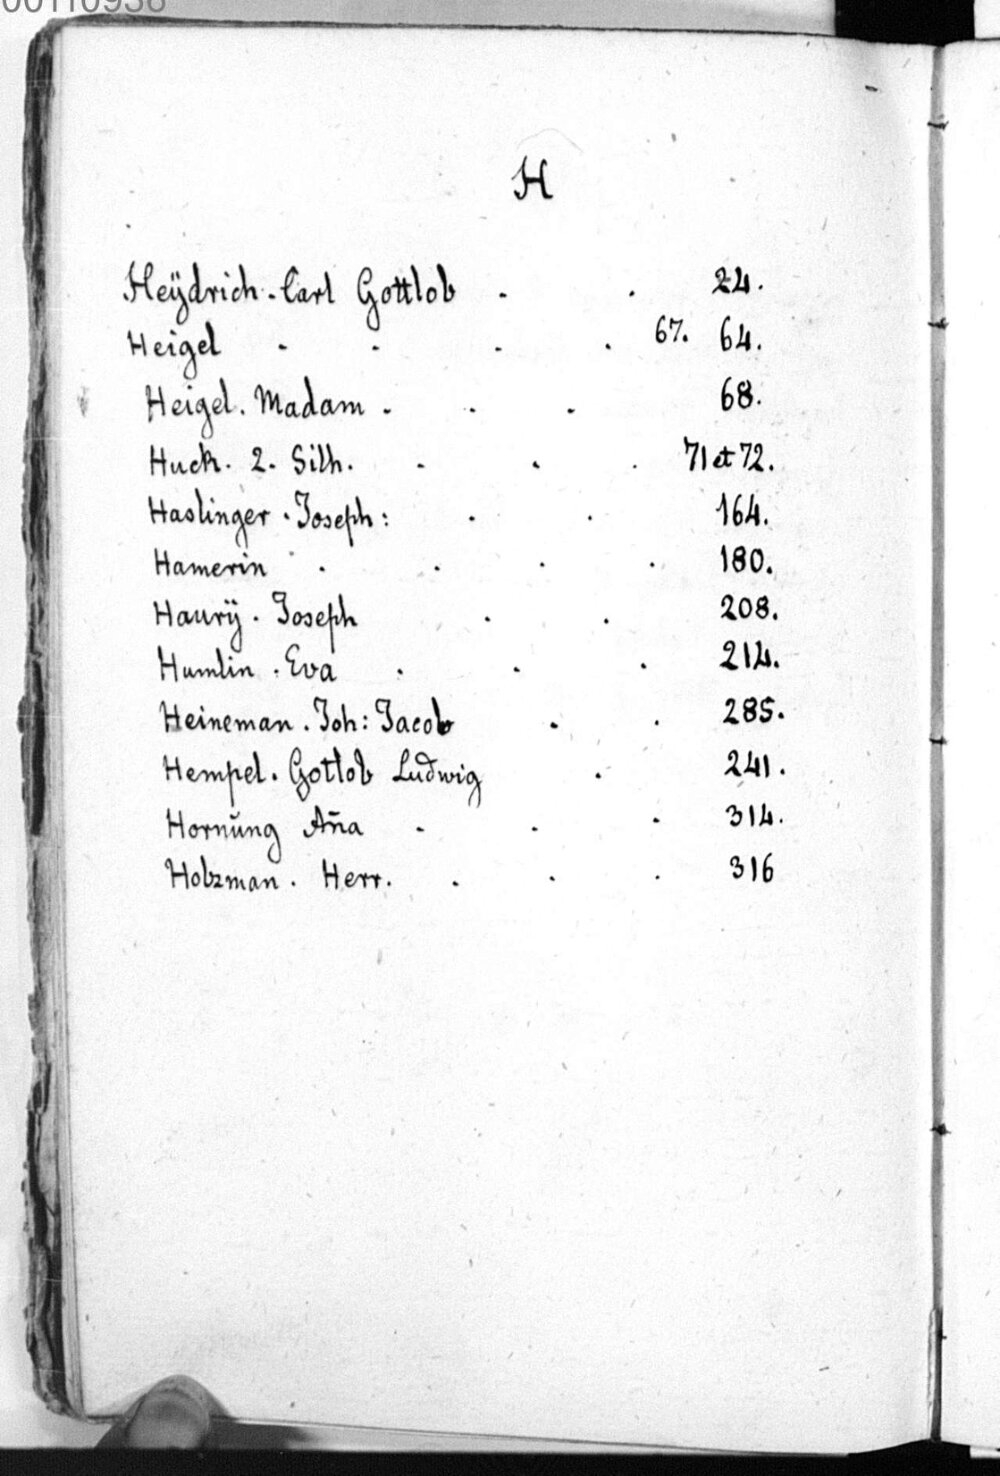 00110938
H
Heÿdrich. Carl Gottlob . . 24.
Heigel . . . . 67. 64.
Heigel. Madam . . . 68.
Huck. 2. Silh. . . . 71 et 72.
Haslinger. Joseph: . . 164.
Hamerin . . . . 180.
Haurÿ. Joseph . . 208.
Humlin. Eva . . . 214.
Heineman. Joh: Jacob . . 285.
Hempel. Gottlob Ludwig . 241.
Hornŭng Aña . . . 314.
Holzman. Herr. . . . 316